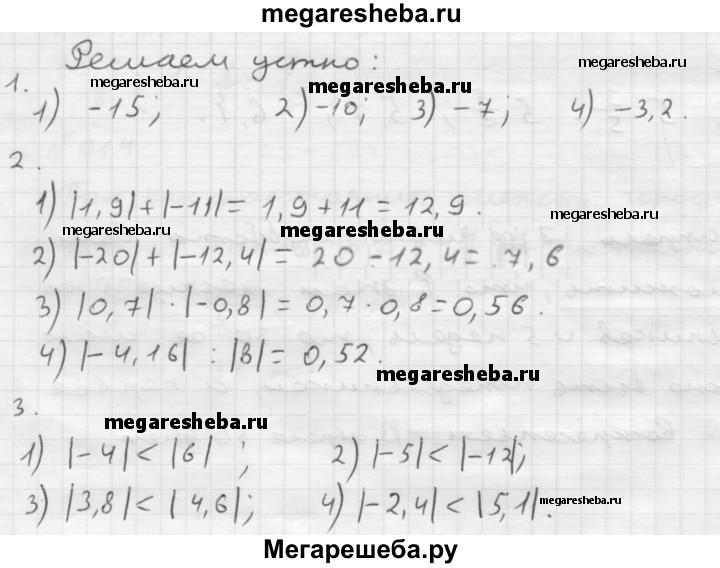 megaresheba.ru
Решаем устно:
megaresheba.ru
1. megaresheba.ru megaresheba.ru
1) -15; 2) -10; 3) -7; 4) -3,2.
2.
1) |1,9| + |-11| = 1,9 + 11 = 12,9.
megaresheba.ru
megaresheba.ru megaresheba.ru
2) |-20| + |-12,4| = 20 - 12,4 = 7,6
3) |0,7| · |-0,8| = 0,7 · 0,8 = 0,56.
4) |-4,16| : |8| = 0,52.
megaresheba.ru
3.
megaresheba.ru
1) |-4| < |6| ; 2) |-5| < |-12|;
3) |3,8| < |4,6|; 4) |-2,4| < |5,1|.
megaresheba.ru
Мегарешеба.ру